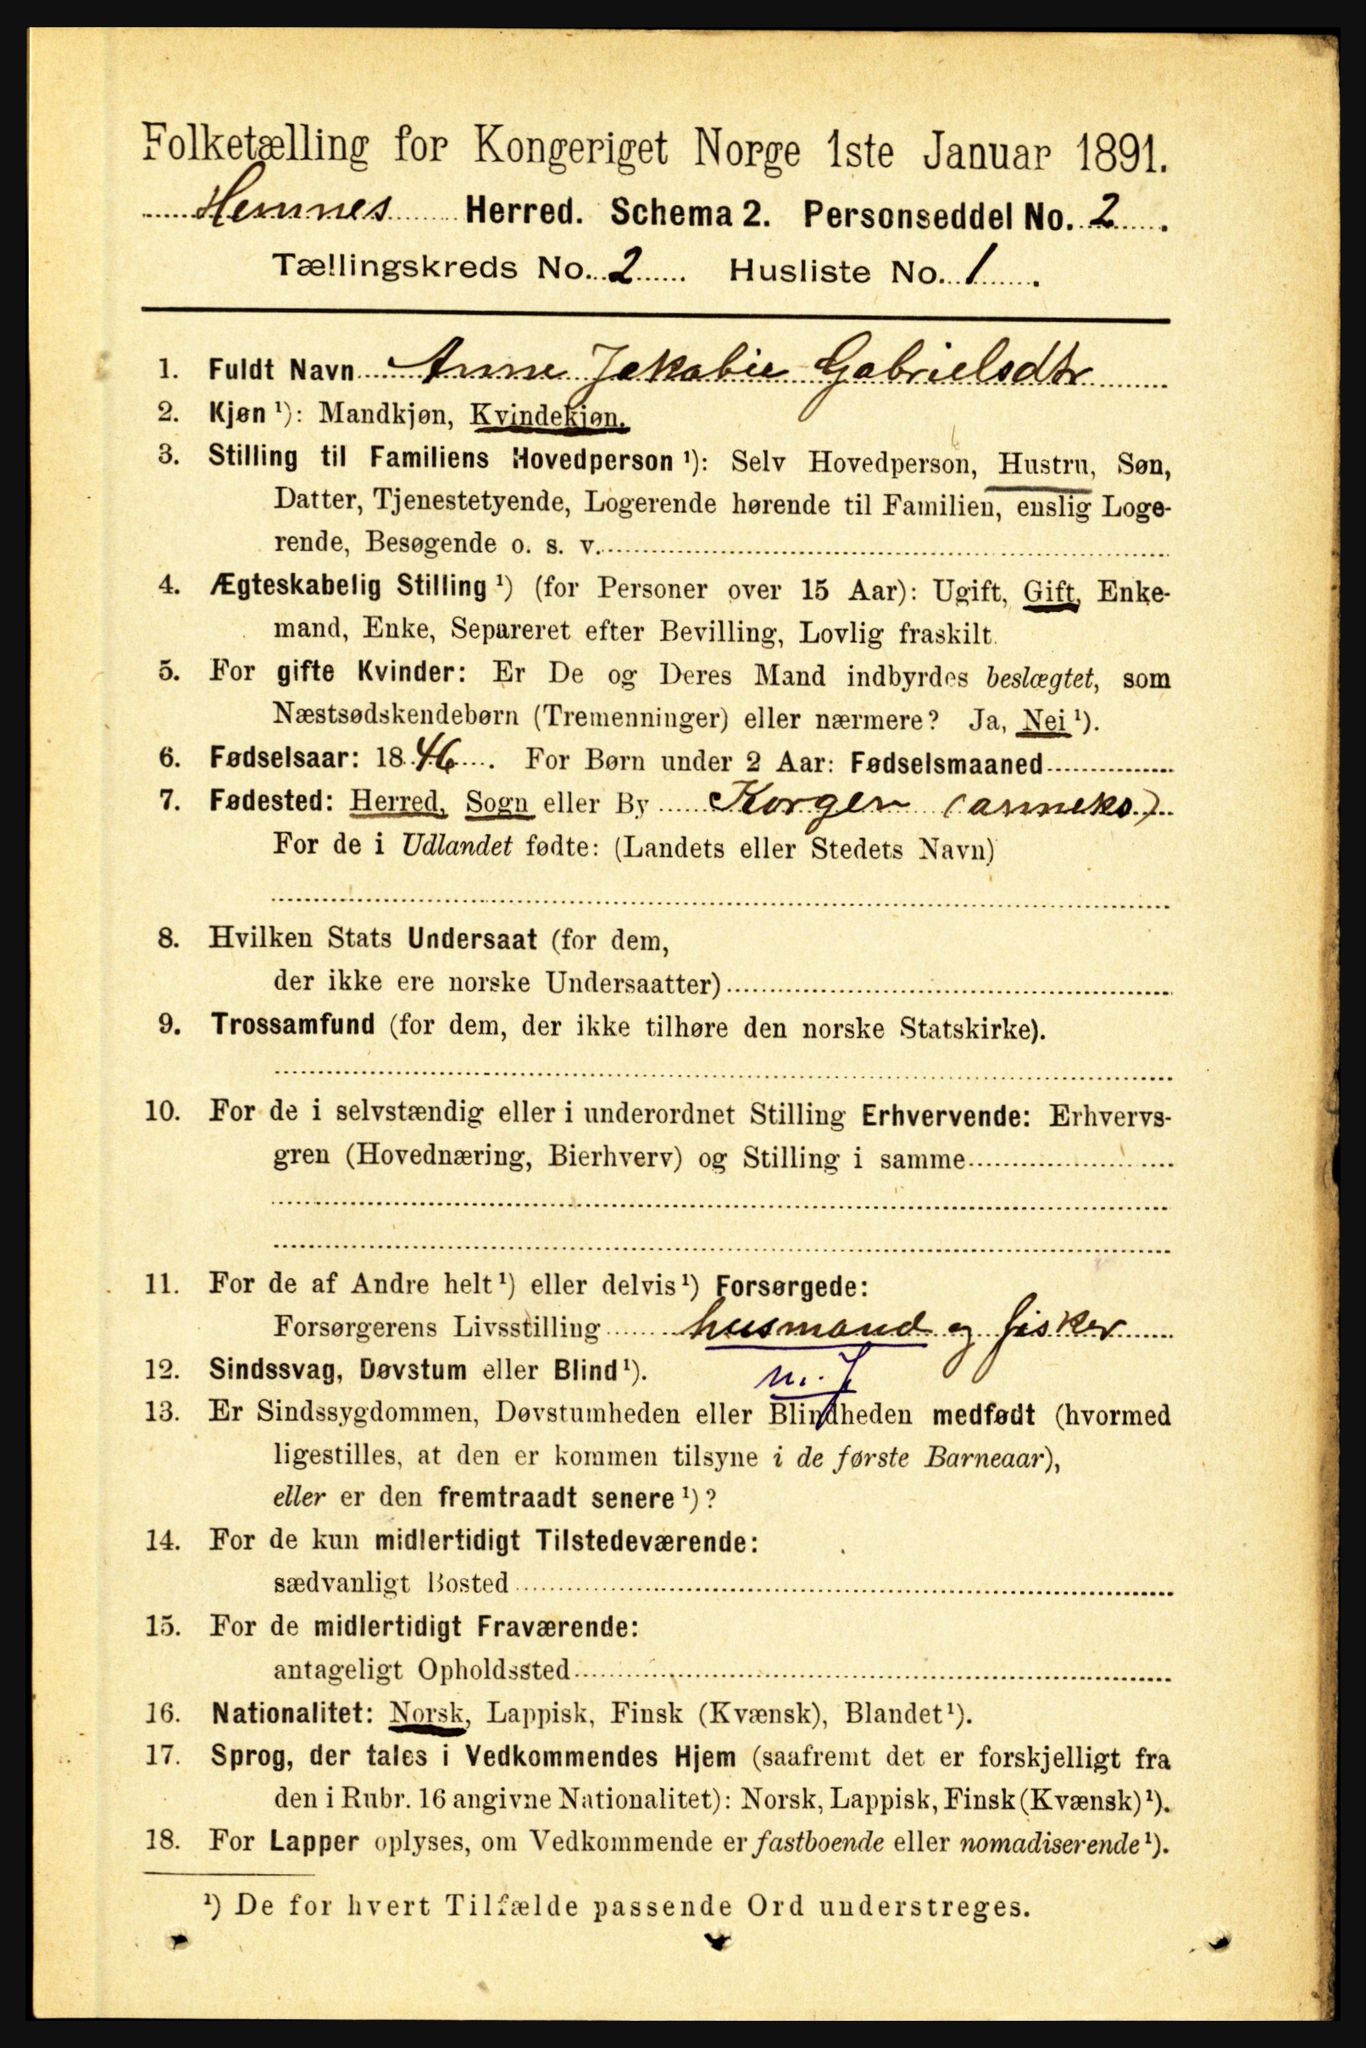 Folketælling for Kongeriget Norge 1ste Januar 1891.
Hemnes Herred. Schema 2. Personseddel No. 2.
Tællingskreds No. 2. Husliste No. 1.
1. Fuldt Navn Anne Jakobie Gabrielsdtr
2. Kjøn ¹): Mandkjøn, Kvindekjøn.
3. Stilling til Familiens Hovedperson ¹): Selv Hovedperson, Hustru, Søn,
Datter, Tjenestetyende, Logerende hørende til Familien, enslig Loge-
rende, Besøgende o. s. v.
4. Ægteskabelig Stilling ¹) (for Personer over 15 Aar): Ugift, Gift, Enke-
mand, Enke, Separeret efter Bevilling, Lovlig fraskilt.
5. For gifte Kvinder: Er De og Deres Mand indbyrdes beslægtet, som
Næstsødskendebørn (Tremenninger) eller nærmere? Ja, Nei ¹).
6. Fødselsaar: 1846. For Børn under 2 Aar: Fødselsmaaned
7. Fødested: Herred, Sogn eller By Korgen (anneks)
For de i Udlandet fødte: (Landets eller Stedets Navn)
8. Hvilken Stats Undersaat (for dem,
der ikke ere norske Undersaatter)
9. Trossamfund (for dem, der ikke tilhøre den norske Statskirke).
10. For de i selvstændig eller i underordnet Stilling Erhvervende: Erhvervs-
gren (Hovednæring, Bierhverv) og Stilling i samme
11. For de af Andre helt ¹) eller delvis ¹) Forsørgede:
Forsørgerens Livsstilling husmand og fisker
12. Sindssvag, Døvstum eller Blind ¹). m. J
13. Er Sindssygdommen, Døvstumheden eller Blindheden medfødt (hvormed
ligestilles, at den er kommen tilsyne i de første Barneaar),
eller er den fremtraadt senere ¹)?
14. For de kun midlertidigt Tilstedeværende:
sædvanligt Bosted
15. For de midlertidigt Fraværende:
antageligt Opholdssted
16. Nationalitet: Norsk, Lappisk, Finsk (Kvænsk), Blandet ¹).
17. Sprog, der tales i Vedkommendes Hjem (saafremt det er forskjelligt fra
den i Rubr. 16 angivne Nationalitet): Norsk, Lappisk, Finsk (Kvænsk) ¹).
18. For Lapper oplyses, om Vedkommende er fastboende eller nomadiserende ¹).
¹) De for hvert Tilfælde passende Ord understreges.